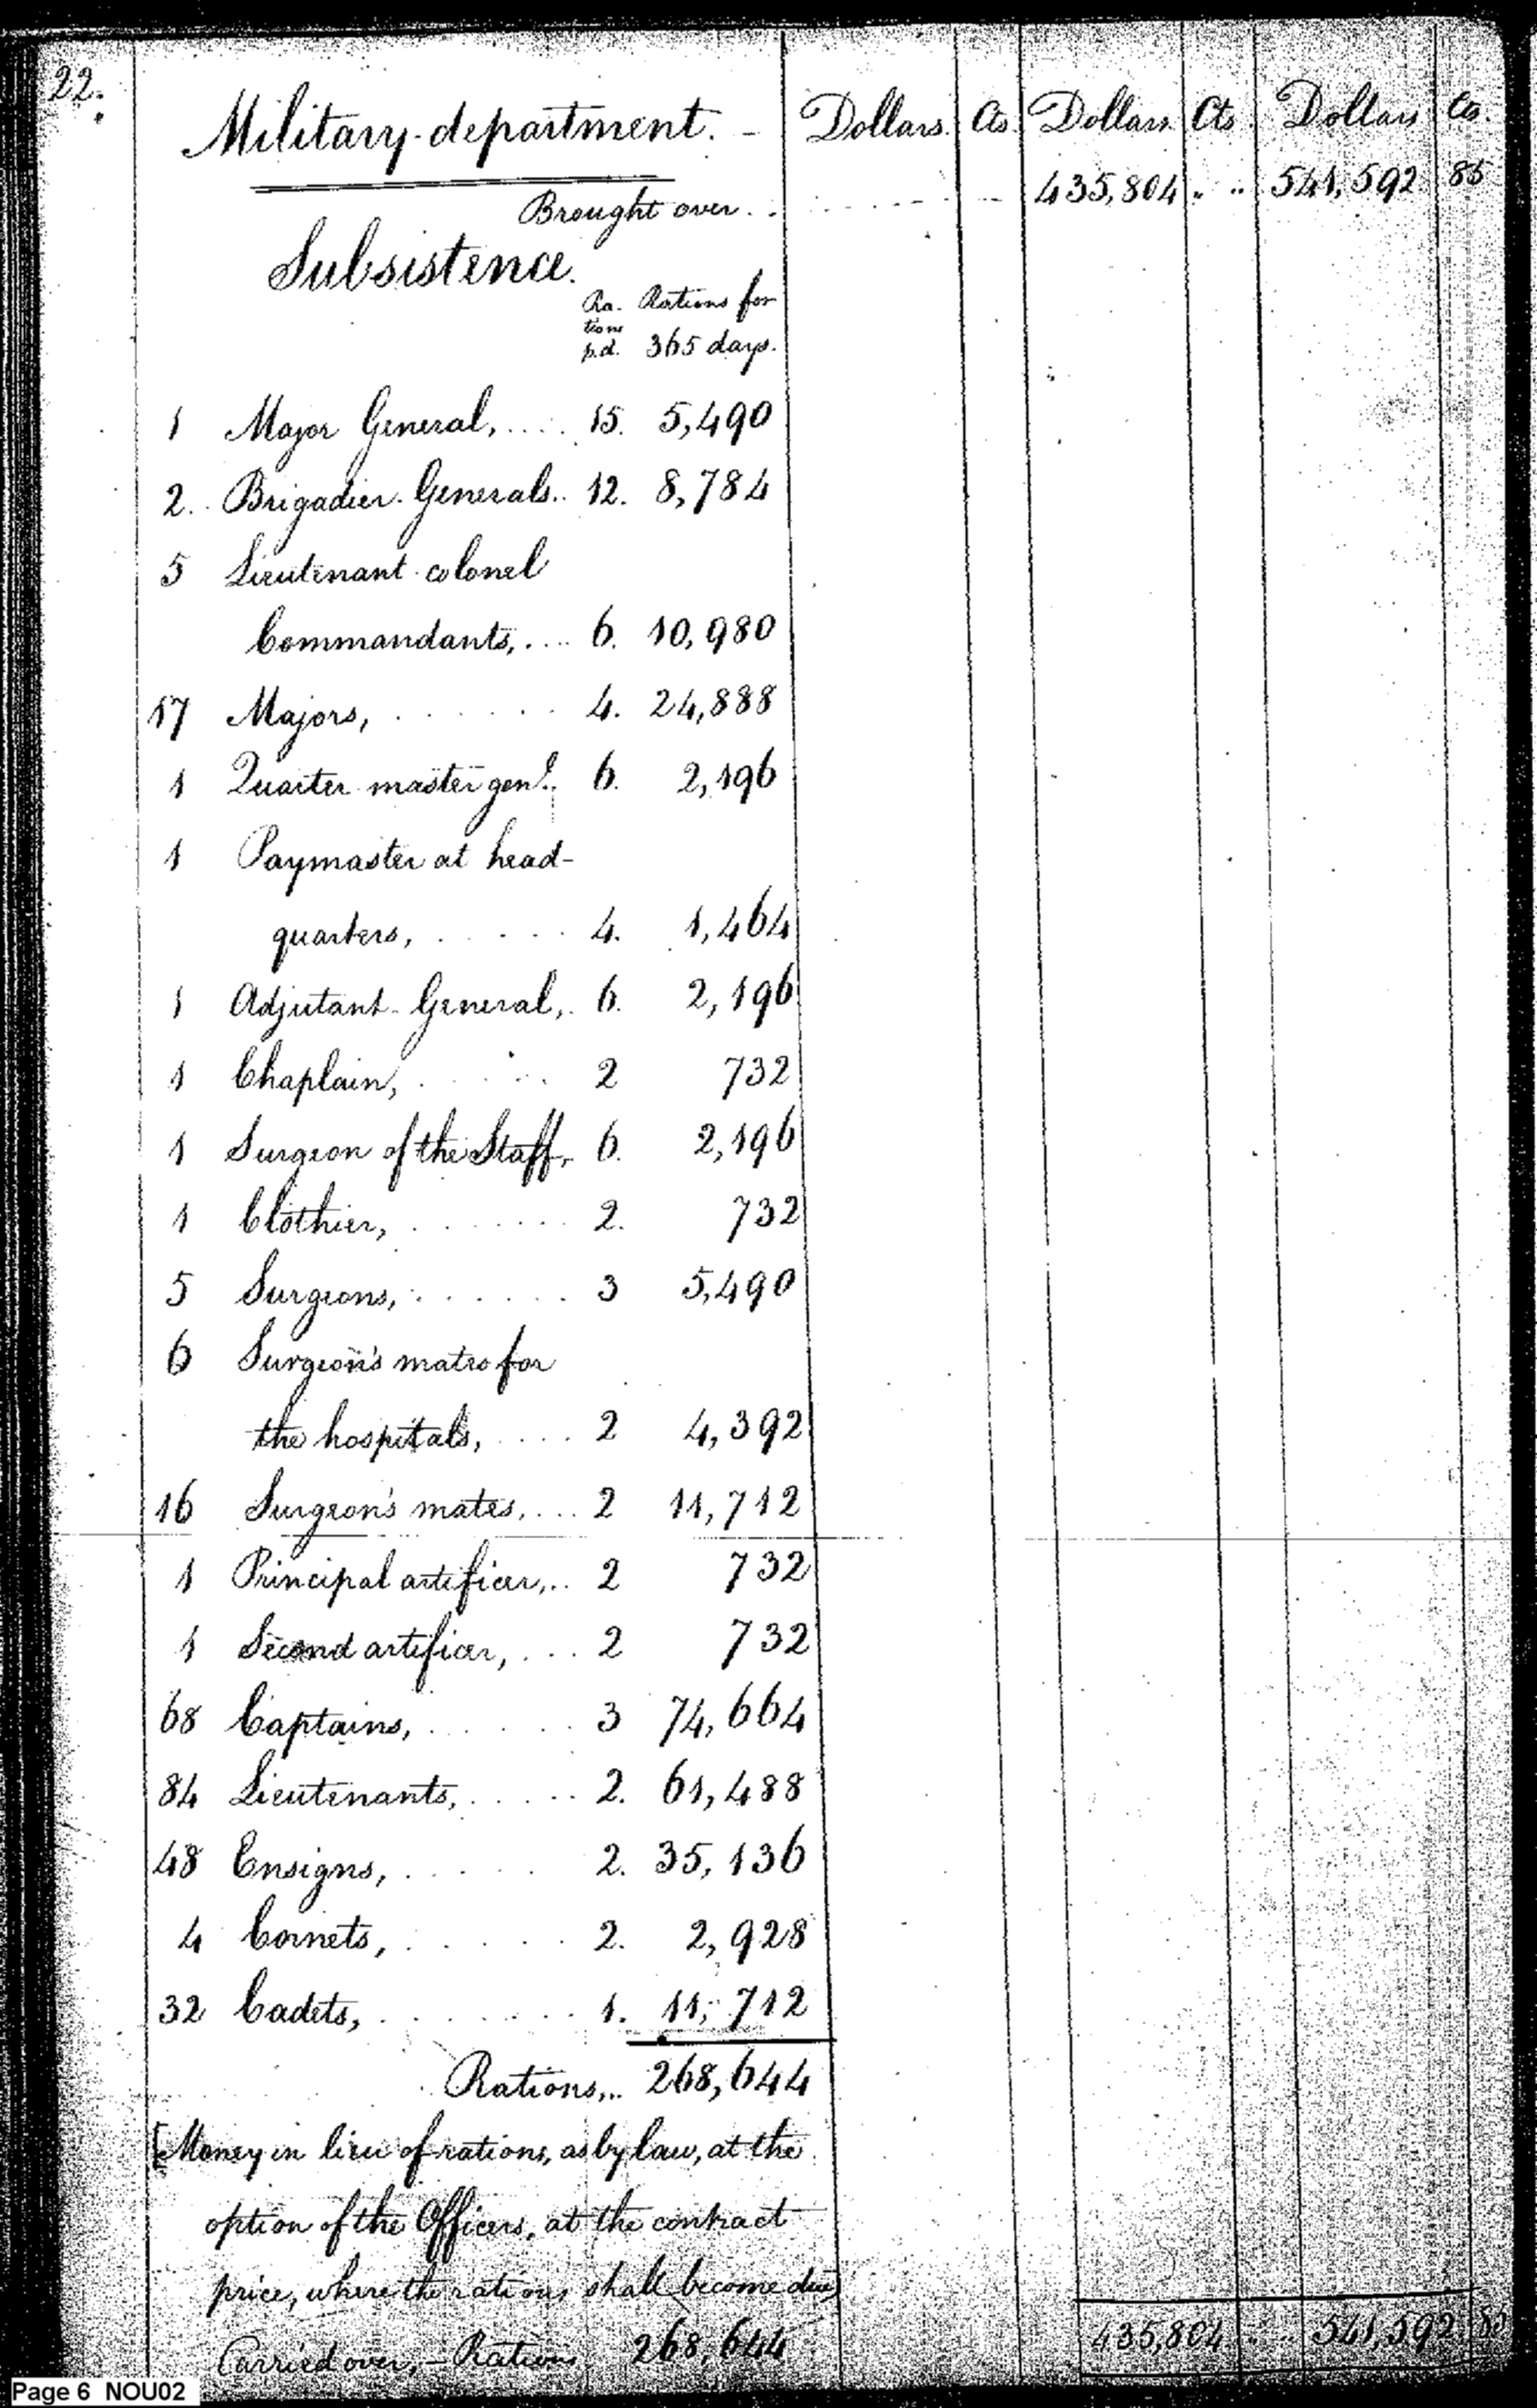 22.
Military-department. - Dollars. Cts. Dollars. Cts Dollars Cts.
Brought over . . 435,804 " " 541,592 85
Subsistence.
Ra- Rations for
tions
p.d. 365 days.
1 Major General, .... 15. 5,490
2. Brigadier-Generals.. 12. 8,784
5 Lieutenant-colonel
Commandants, .... 6. 10,980
17 Majors, ...... 4. 24,888
1 Quarter master gen!. 6. 2,196
1 Paymaster at head-
quarters, ..... 4. 1,464
1 Adjutant-General,. 6. 2,196
1 Chaplain, ..... 2 732
1 Surgeon of the Staff, 6. 2,196
1 Clothier, ....... 2. 732
5 Surgeons, ...... 3 5,490
6 Surgeon's mates for
the hospitals, .... 2 4,392
16 Surgeon's mates, ... 2 11,712
1 Principal artificer, .. 2 732
1 Second artificer, ... 2 732
68 Captains, ..... 3 74,664
84 Lieutenants, ..... 2. 61,488
48 Ensigns, ..... 2. 35,136
4 Cornets, ...... 2. 2,928
32 Cadets, ....... 1. 11,712
Rations, .. 268,644
[Money in lieu of rations, as by law, at the
option of the Officers, at the contract
price, where the rations shall become due]
Carried over, - Rations 268,644 435,804 541,592 85
Page 6 NOU02